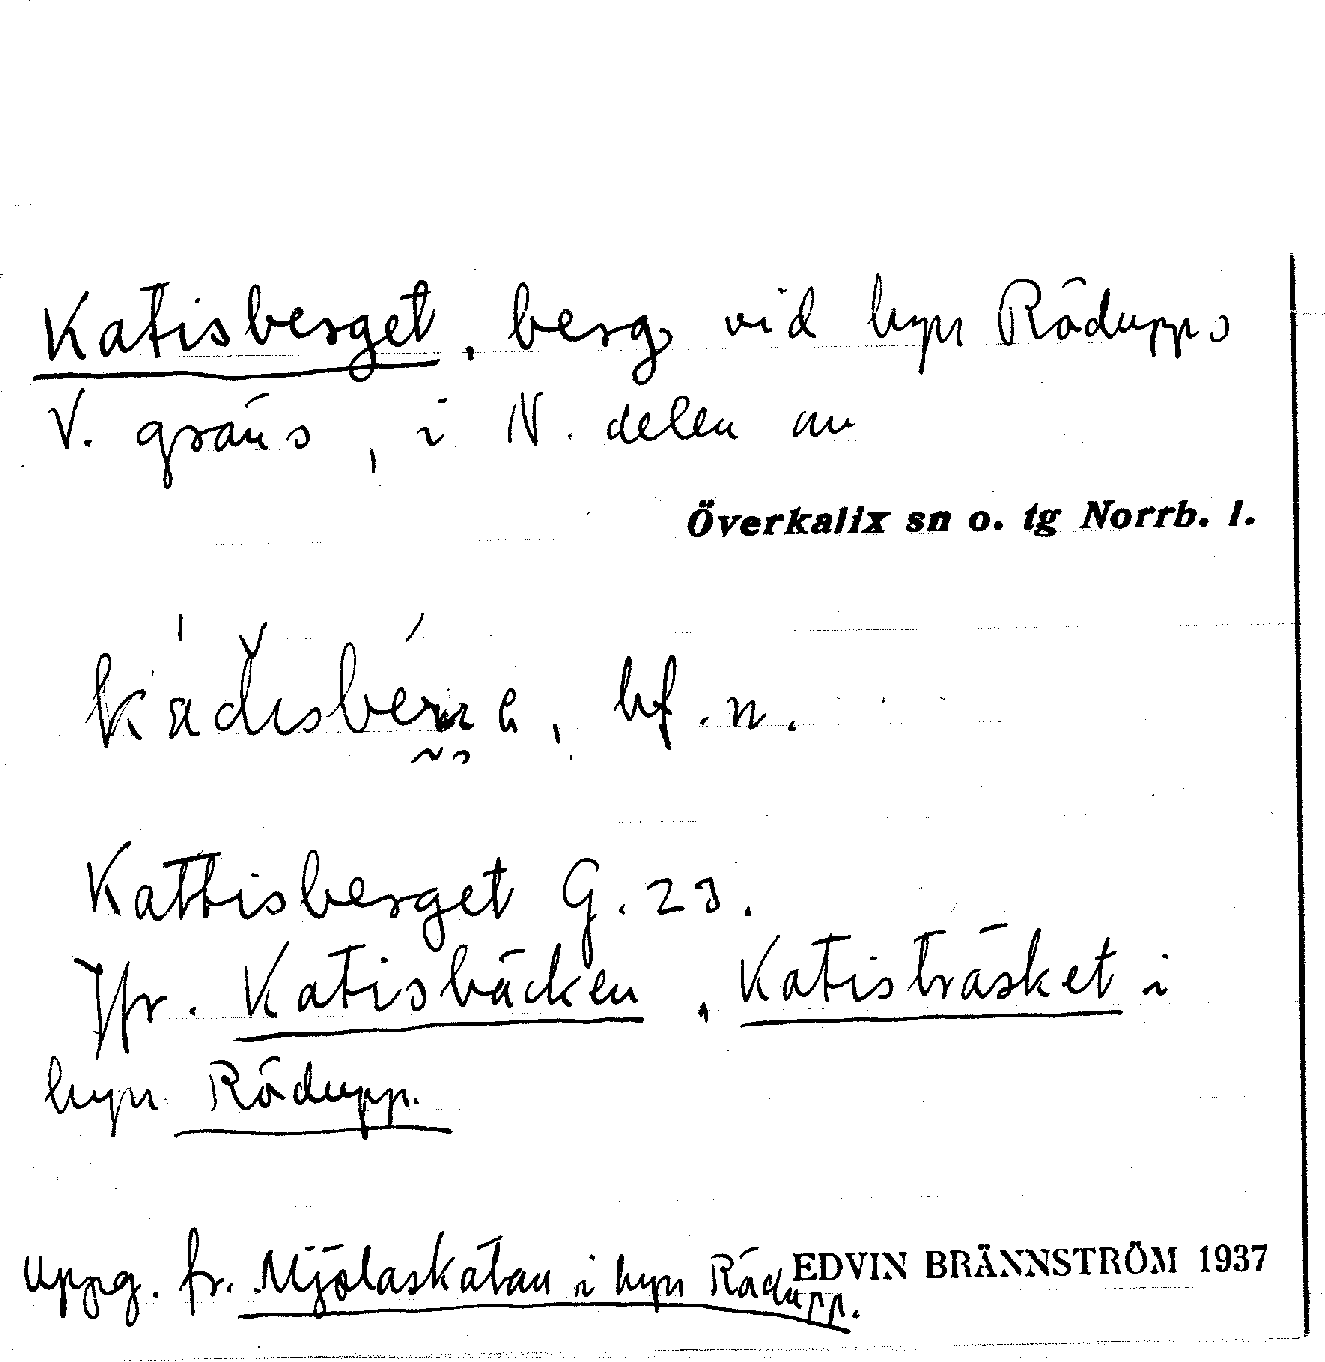 Katisberget, berg vid byn Rödupps
V. gräns, i N. delen av
Överkalix sn o. tg Norrb. l.
bf. n.
Kattisberget G. 23.
Jfr. Katisbäcken, Katisträsket i
byn Rödupp.
Uppg. fr. Mjölaskatan i byn Rödupp.
EDVIN BRÄNNSTRÖM 1937